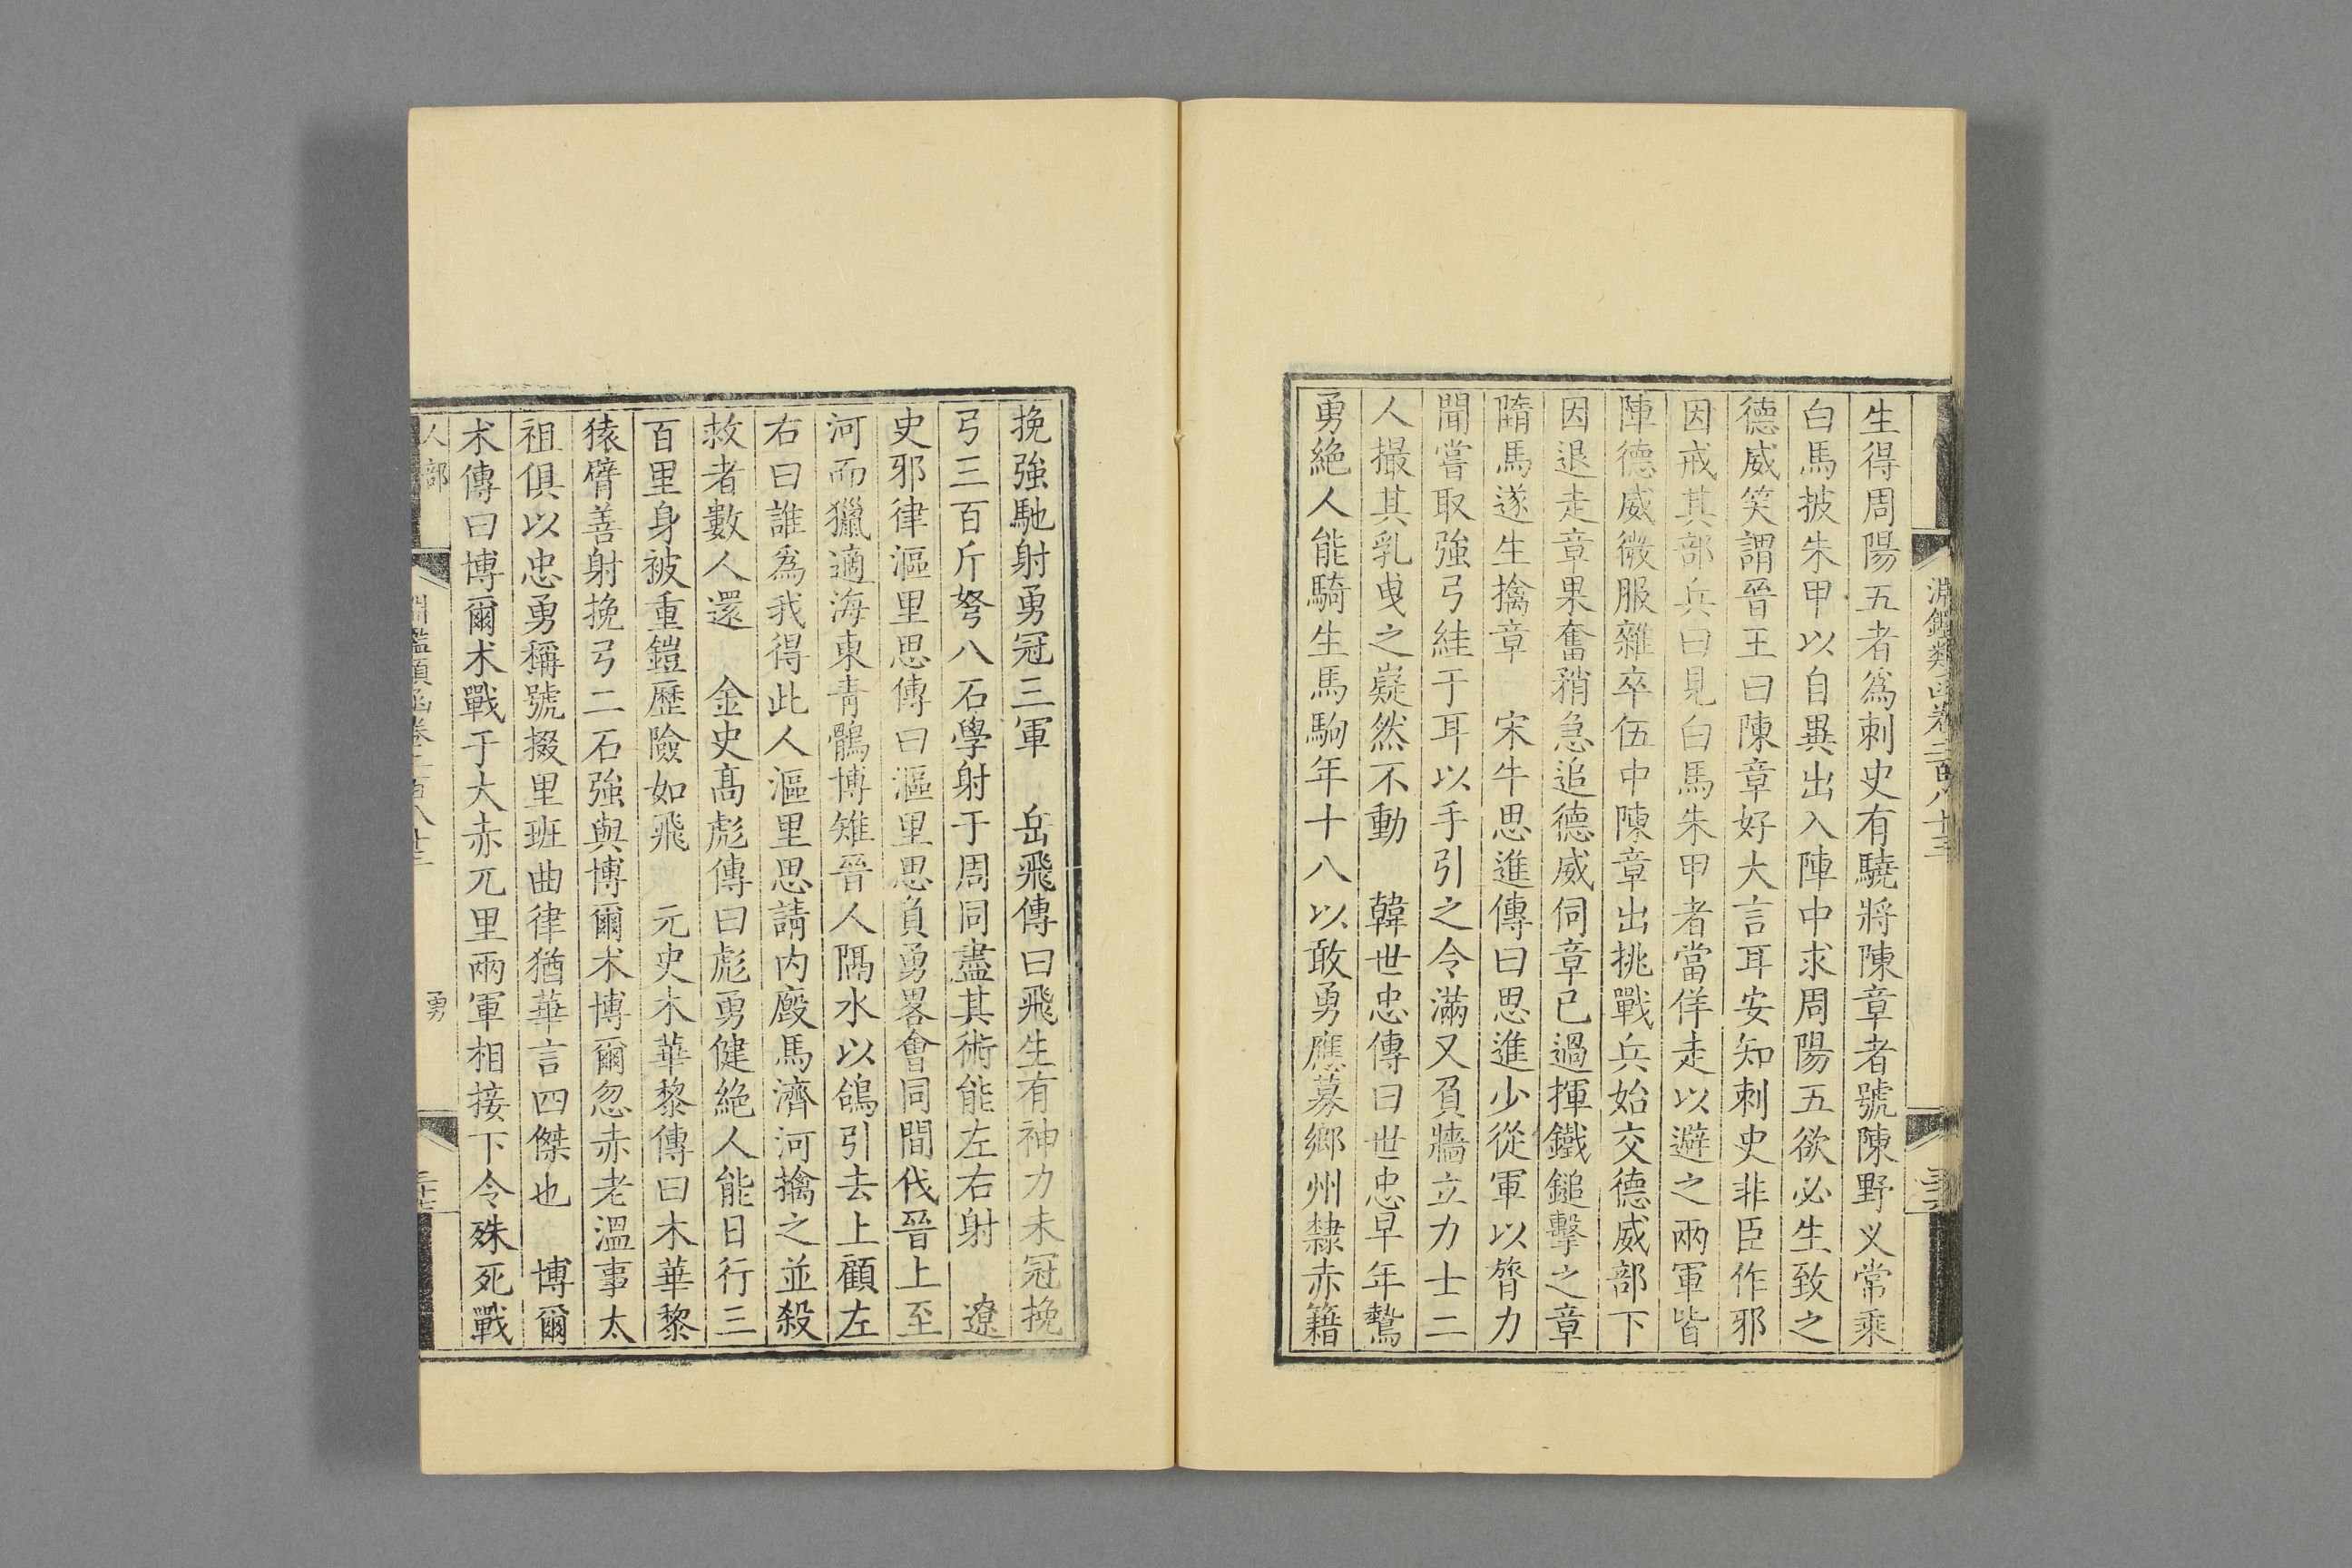 淵鑑類函卷二百八十三
生得周陽五者爲刺史有驍將陳章者號陳野义常乘
白馬披朱甲以自異出入陣中求周陽五欲必生致之
德威笑謂晉王曰陳章好大言耳安知刺史非臣作邪
因戒其部兵曰見白馬朱甲者當佯走以避之兩軍皆
陣德威微服雜卒伍中陳章出挑戰兵始交德威部下
因退走章果奮矟急追德威伺章已過揮鐵鎚擊之章
隋馬遂生擒章 宋牛思進傳曰思進少從軍以膂力
聞嘗取強弓絓于耳以手引之令滿又負牆立力士二
人撮其乳曳之嶷然不動 韓世忠傳曰世忠早年鷙
勇絶人能騎生馬駒年十八以敢勇應募鄉州隸赤籍
挽強馳射勇冠三軍 岳飛傳曰飛生有神力未冠挽
弓三百斤弩八石學射于周同盡其術能左右射 遼
史邪律漚里思傳曰漚里思負勇畧會同間伐晉上至
河而獵適海東青鶻博雉晉人隅水以鴿引去上顧左
右曰誰爲我得此人漚里思請内廏馬濟河擒之並殺
救者數人還 金史高彪傳曰彪勇健絶人能日行三
百里身被重鎧歷險如飛 元史木華黎傳曰木華黎
猿臂善射挽弓二石強與博爾朮博爾忽赤老溫事太
祖俱以忠勇稱號掇里班曲律猶華言四傑也 博爾
朮傳曰博爾朮戰于大赤兀里兩軍相接下令殊死戰
人部
淵鑑類函卷二百八十三
勇